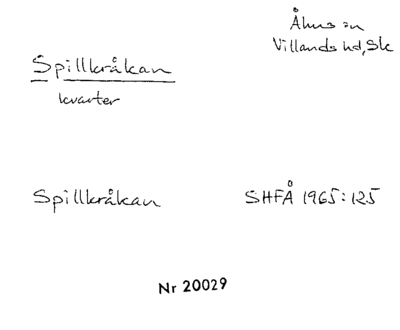 Åhus sn
Villands hd, Sk
Spillkråkan
kvarter
Spillkråkan SHFÅ 1965:125
Nr 20029